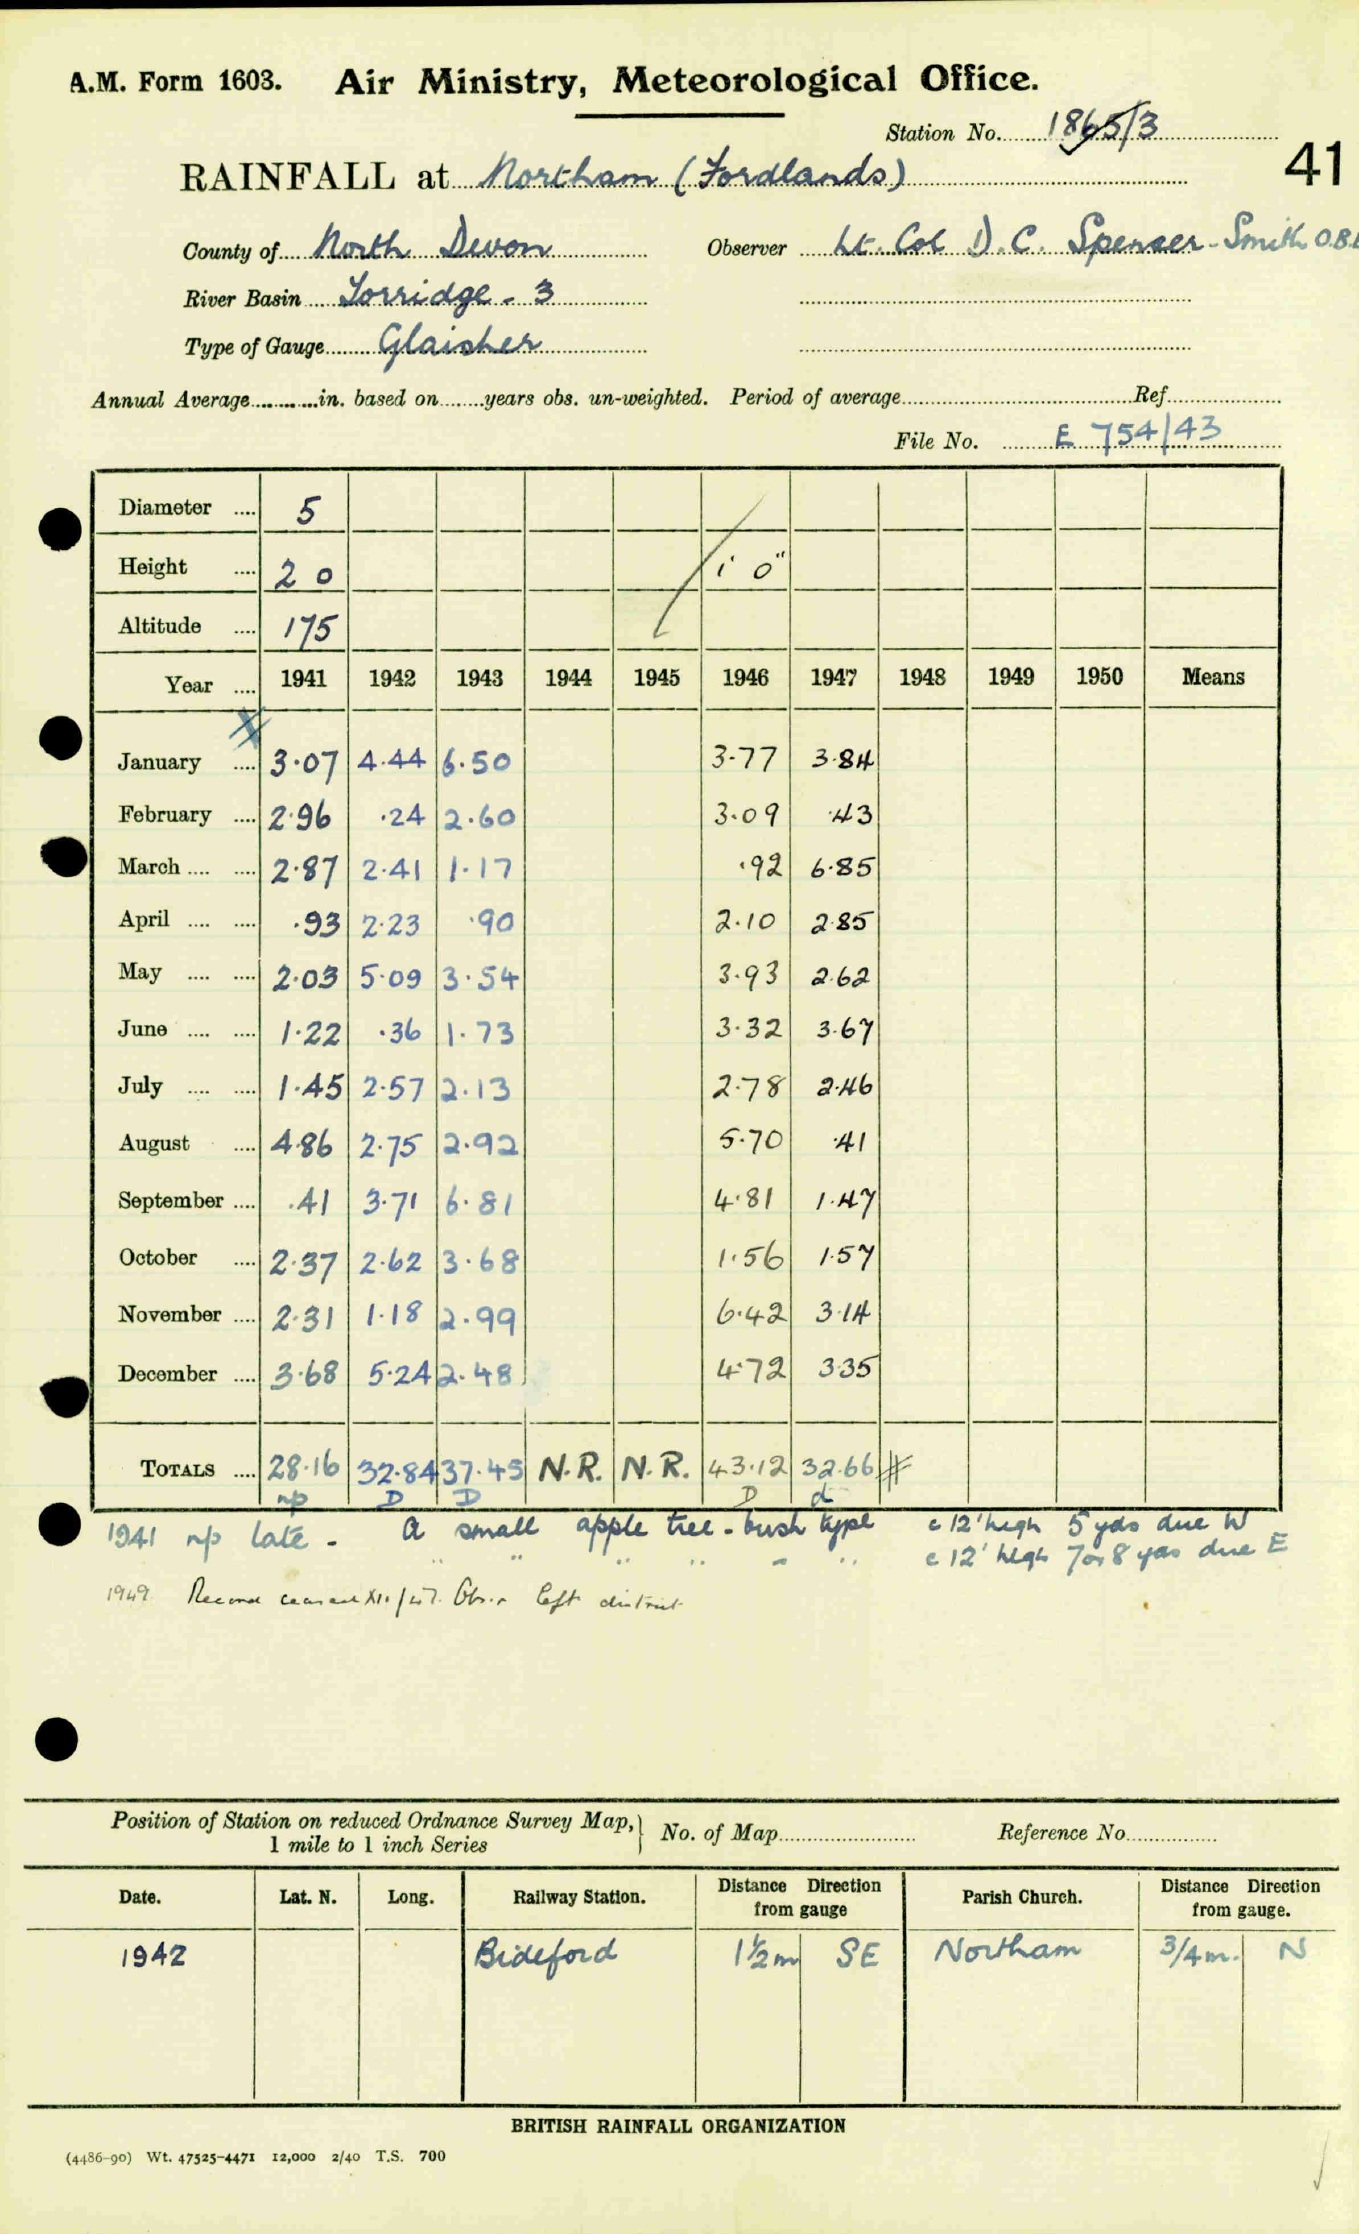 A.M. Form 1603. Air Ministry, Meteorological Office.
Station No. 1865/3
41
RAINFALL at Northam (Fordlands)
County of North Devon Observer Lt. Col D. C. Spenser-Smith O.B.E
River Basin Torridge - 3
Type of Gauge Glaisher
Annual Average in. based on years obs. un-weighted. Period of average Ref
File No. E 754/43
Diameter 5
Height 2 0 1' 0"
Altitude 175
Year 1941 1942 1943 1944 1945 1946 1947 1948 1949 1950 Means
January 3.07 4.44 6.50 3.77 3.84
February 2.96 .24 2.60 3.09 .43
March 2.87 2.41 1.17 .92 6.85
April .93 2.23 .90 2.10 2.85
May 2.03 5.09 3.54 3.93 2.62
June 1.22 .36 1.73 3.32 3.67
July 1.45 2.57 2.13 2.78 2.46
August 4.86 2.75 2.92 5.70 .41
September .41 3.71 6.81 4.81 1.47
October 2.37 2.62 3.68 1.56 1.57
November 2.31 1.18 2.99 6.42 3.14
December 3.68 5.24 2.48 4.72 3.35
TOTALS 28.16 32.84 37.45 N.R. N.R. 43.12 32.66
np D D D d
1941 np late - A small apple tree - bush type c 12' high 5 yds due W
" " " " - " c 12' high 7 or 8 yds due E
1949 Record ceased XII/47. Obsr left district
Position of Station on reduced Ordnance Survey Map, 1 mile to 1 inch Series No. of Map Reference No.
Date. Lat. N. Long. Railway Station. Distance Direction from gauge Parish Church. Distance Direction from gauge.
1942 Bideford 1½ m SE Northam 3/4 m. N
BRITISH RAINFALL ORGANIZATION
(4486-90) Wt. 47525-4471 12,000 2/40 T.S. 700